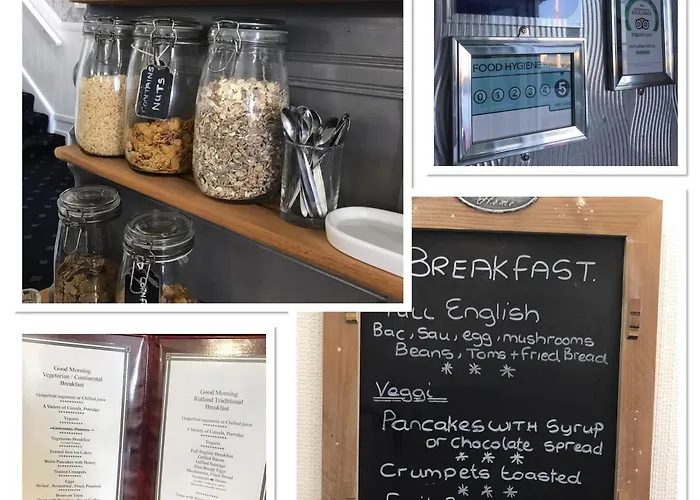 CONTAINS
NUTS
FOOD HYGIENE
0 1 2 3 4 5
tripadvisor
RUTLAND HOTEL
Home
BREAKFAST.
Full English
Bac, Sau, egg, mushrooms
Beans, Toms + Fried Bread
* * *
Veggi
Pancakes with Syrup
or chocolate spread
* * *
Crumpets toasted
* * *
Good Morning
Vegetarian / Continental
Breakfast
Grapefruit segments or Chilled juice
A Variety of Cereals, Porridge
Yogurts
Vegetarian Breakfast
Toasted fruit tea Cakes
Warm Pancakes with Honey
Toasted Crumpets
Eggs
Boiled , Scrambled , Fried, Poached
Beans on Toast
Good Morning
Rutland Traditional
Breakfast
Grapefruit segments or Chilled juice
A Variety of Cereals, Porridge
Yogurts
Full English Breakfast
Grilled Bacon
Grilled Sausage
Free Range Eggs